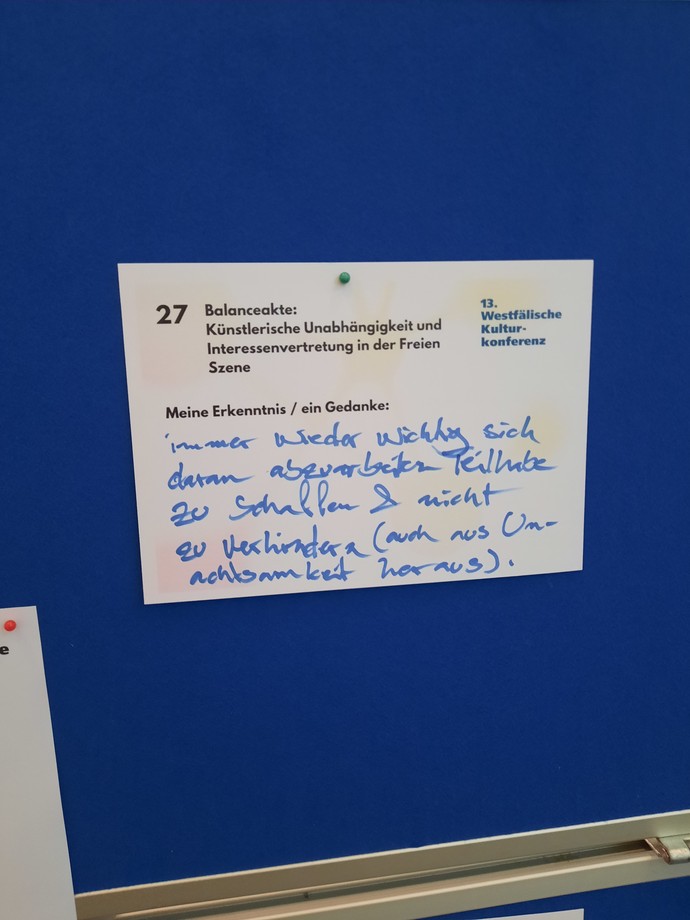 27 Balanceakte:
Künstlerische Unabhängigkeit und
Interessenvertretung in der Freien
Szene
13.
Westfälische
Kultur-
konferenz
Meine Erkenntnis / ein Gedanke:
immer wieder wichtig sich
daran abzuarbeiten Teilhabe
zu schaffen & nicht
zu verhindern (auch aus Un-
achtsamkeit heraus).
e